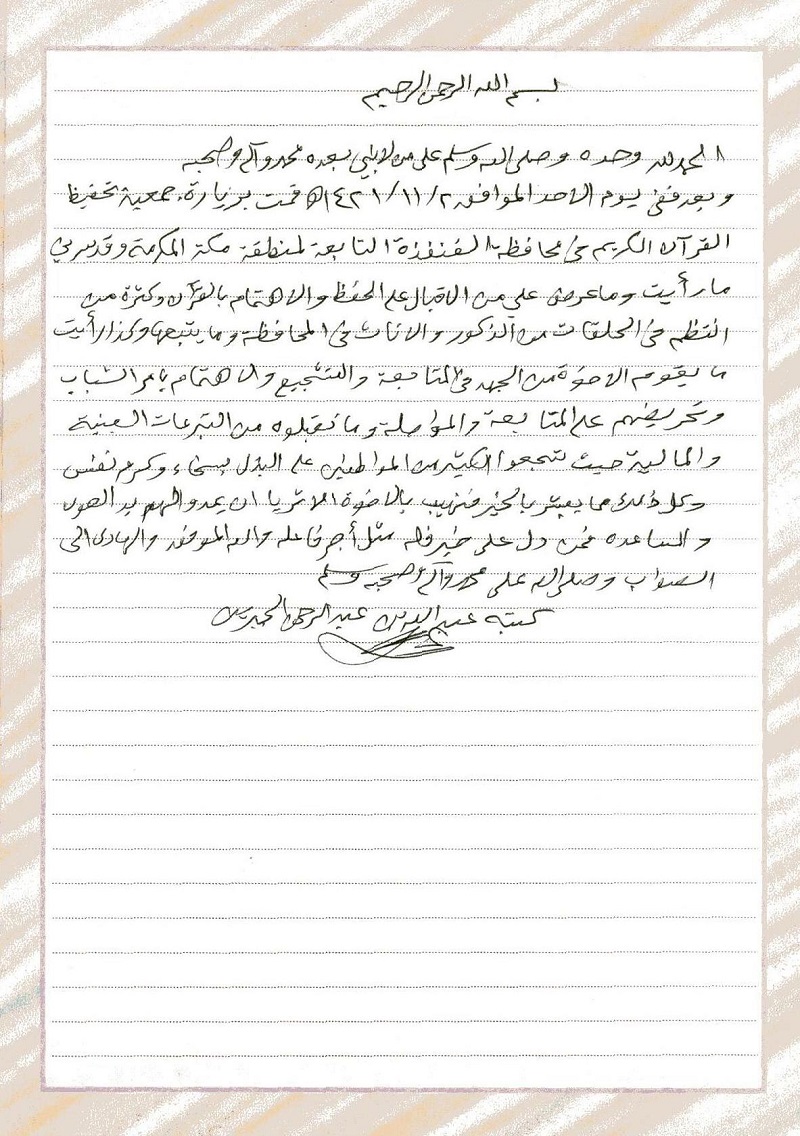 بسم الله الرحمن الرحيم
الحمد لله وحده وصلى الله وسلم على من لا نبي بعده محمد وآله وصحبه
وبعد ففي يوم الاحد الموافق ١٤٢١/١١/٢ هـ قمت بزيارة جمعية تحفيظ
القرآن الكريم في محافظة القنفذة التابعة لمنطقة مكة المكرمة وقد سرني
ما رأيت وما عرض علي من الاقبال على الحفظ والاهتمام بالقرآن وكثرة من
انتظم في الحلقات من الذكور والاناث في المحافظة وما يتبعها وكذا رأيت
ما يقوم الاخوة من الجهد في المتابعة والتشجيع والاهتمام بامر الشباب
وتحريضهم على المتابعة والمواصلة وما تقبلوه من التبرعات العينية
والمالية حيث شجعوا الكثير من المواطنين على البذل بسخاء وكرم نفس
وكل ذلك مما يبشر بالخير فنهيب بالاخوة الاثرياء ان يمدوا لهم يد العون
والمساعده فمن دل على خير فله مثل أجر فاعله والله الموفق والهادي الى
الصواب وصلى الله على محمد وآله وصحبه وسلم
كتبه عبد الله بن عبد الرحمن الجبرين